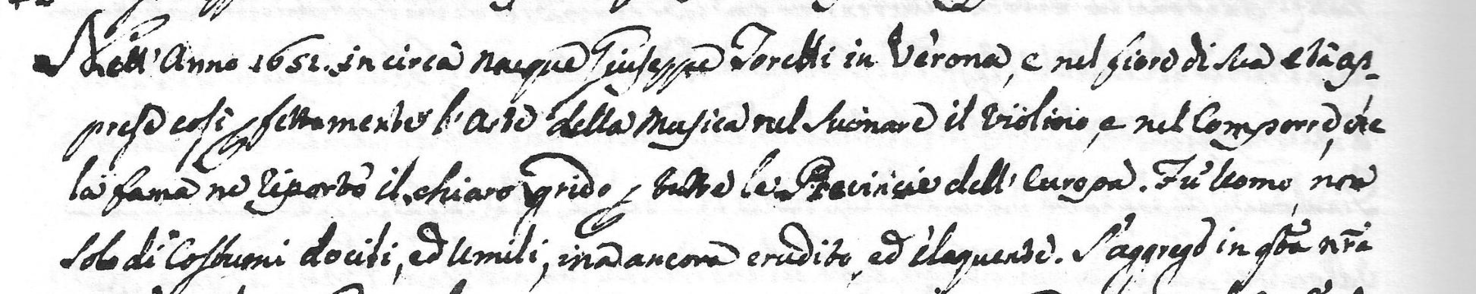 Nell' Anno 1651. in circa nacque Giuseppe Torelli in Verona, e nel fiore di sua età ap-
prese così pfettamente l'Arte della Musica nel suonare il Violino, e nel Comporre, che
la fama ne riportò il chiaro grido p tutte le Provincie dell' Europa. Fù Uomo, non
solo di Costumi docili, ed Umili, mà ancora erudito, ed elaquente. S'aggregò in qta nra